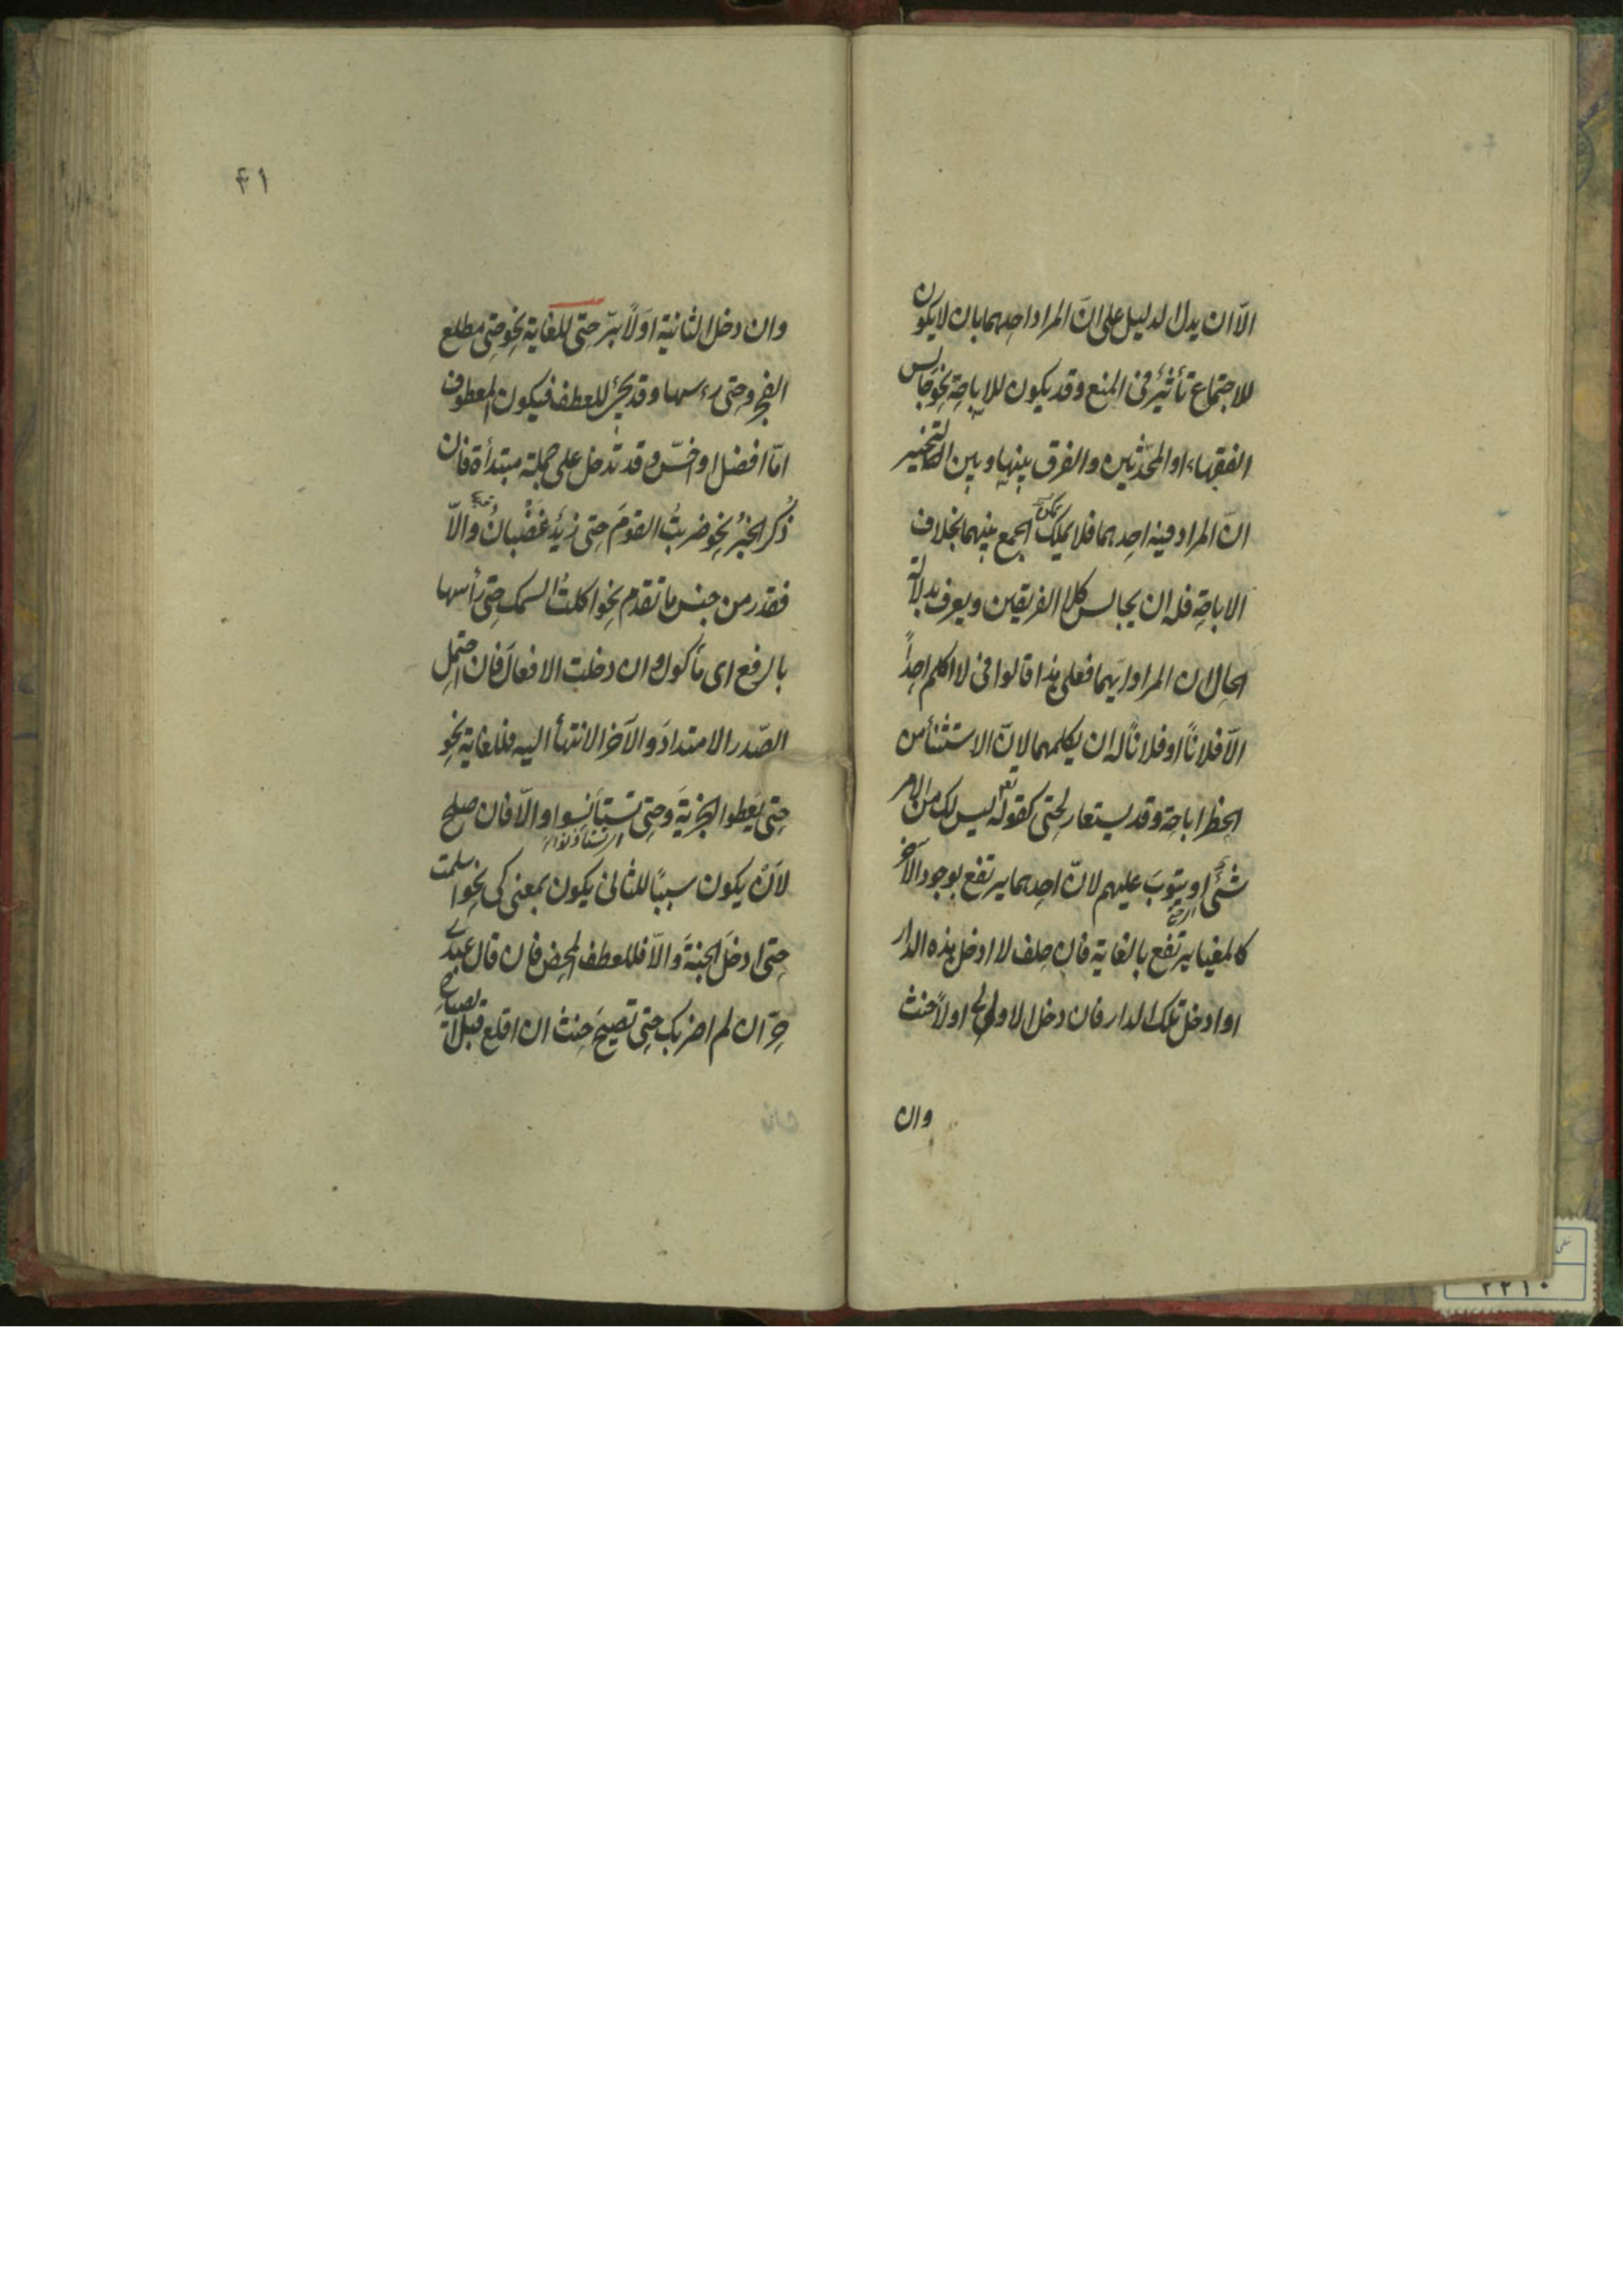 الّا ان يدل الدليل على انّ المراد احدهما بان لا يكون
للاجتماع تأثيرٌ في المنع وقد يكون للاباحة نحو جالس
الفقهاء او المحدّثين والفرق بينها وبين التخيير
انّ المراد فيه احدهما فلا يملك الجمع بينهما بخلاف
الاباحة فله ان يجالس كلا الفريقين ويعرف بدلالة
الحال ان المراد ايّهما فعلى هذا قالوا في لا اكلم احداً
الّا فلاناً او فلاناً له ان يكلمهما لانّ الاستثنأ من
الحظر اباحة وقد يستعار لحتى كقوله تع ليس لك من الامر
شئ او يتوبَ عليهم لانّ احدهما يرتفع بوجود الآخر
كالمغيا يرتفع بالغاية فان حلف لا ادخل هذه الدار
او ادخل تلك الدار فان دخل الاولى اولاً حنث
وان
٤١
وان دخل الثانية اوّلاً برّ حتى للغاية نحو حتى مطلع
الفجر وحتى رءسها وقد يجئ للعطف فيكون المعطوف
امّا افضل او اخسّ وقد تدخل على جملة مبتدأة فان
ذُكر الخبرُ نحو ضربتُ القومَ حتى زيدٌ غضْبانُ والّا
فقدر من جنس ما تقدم نحو اكلتُ السمك حتى رأسها
بالرفع اى مأكول وان دخلت الافعالَ فان احتمل
الصّدر الامتدادَ والآخر الانتهأ اليه فللغاية نحو
حتى يُعطوا الجزيةَ وحتى تستأنسوا والّا فان صلح
لاَنْ يكون سببًا للثاني يكون بمعنى كى نحو اسلمت
حتى ادخلَ الجنةَ والّا فللعطف المحض فان قال عبدى
حرّ ان لم اضربك حتى تصيحَ حنث ان اقلع قبل الصياح
٢٢١٠